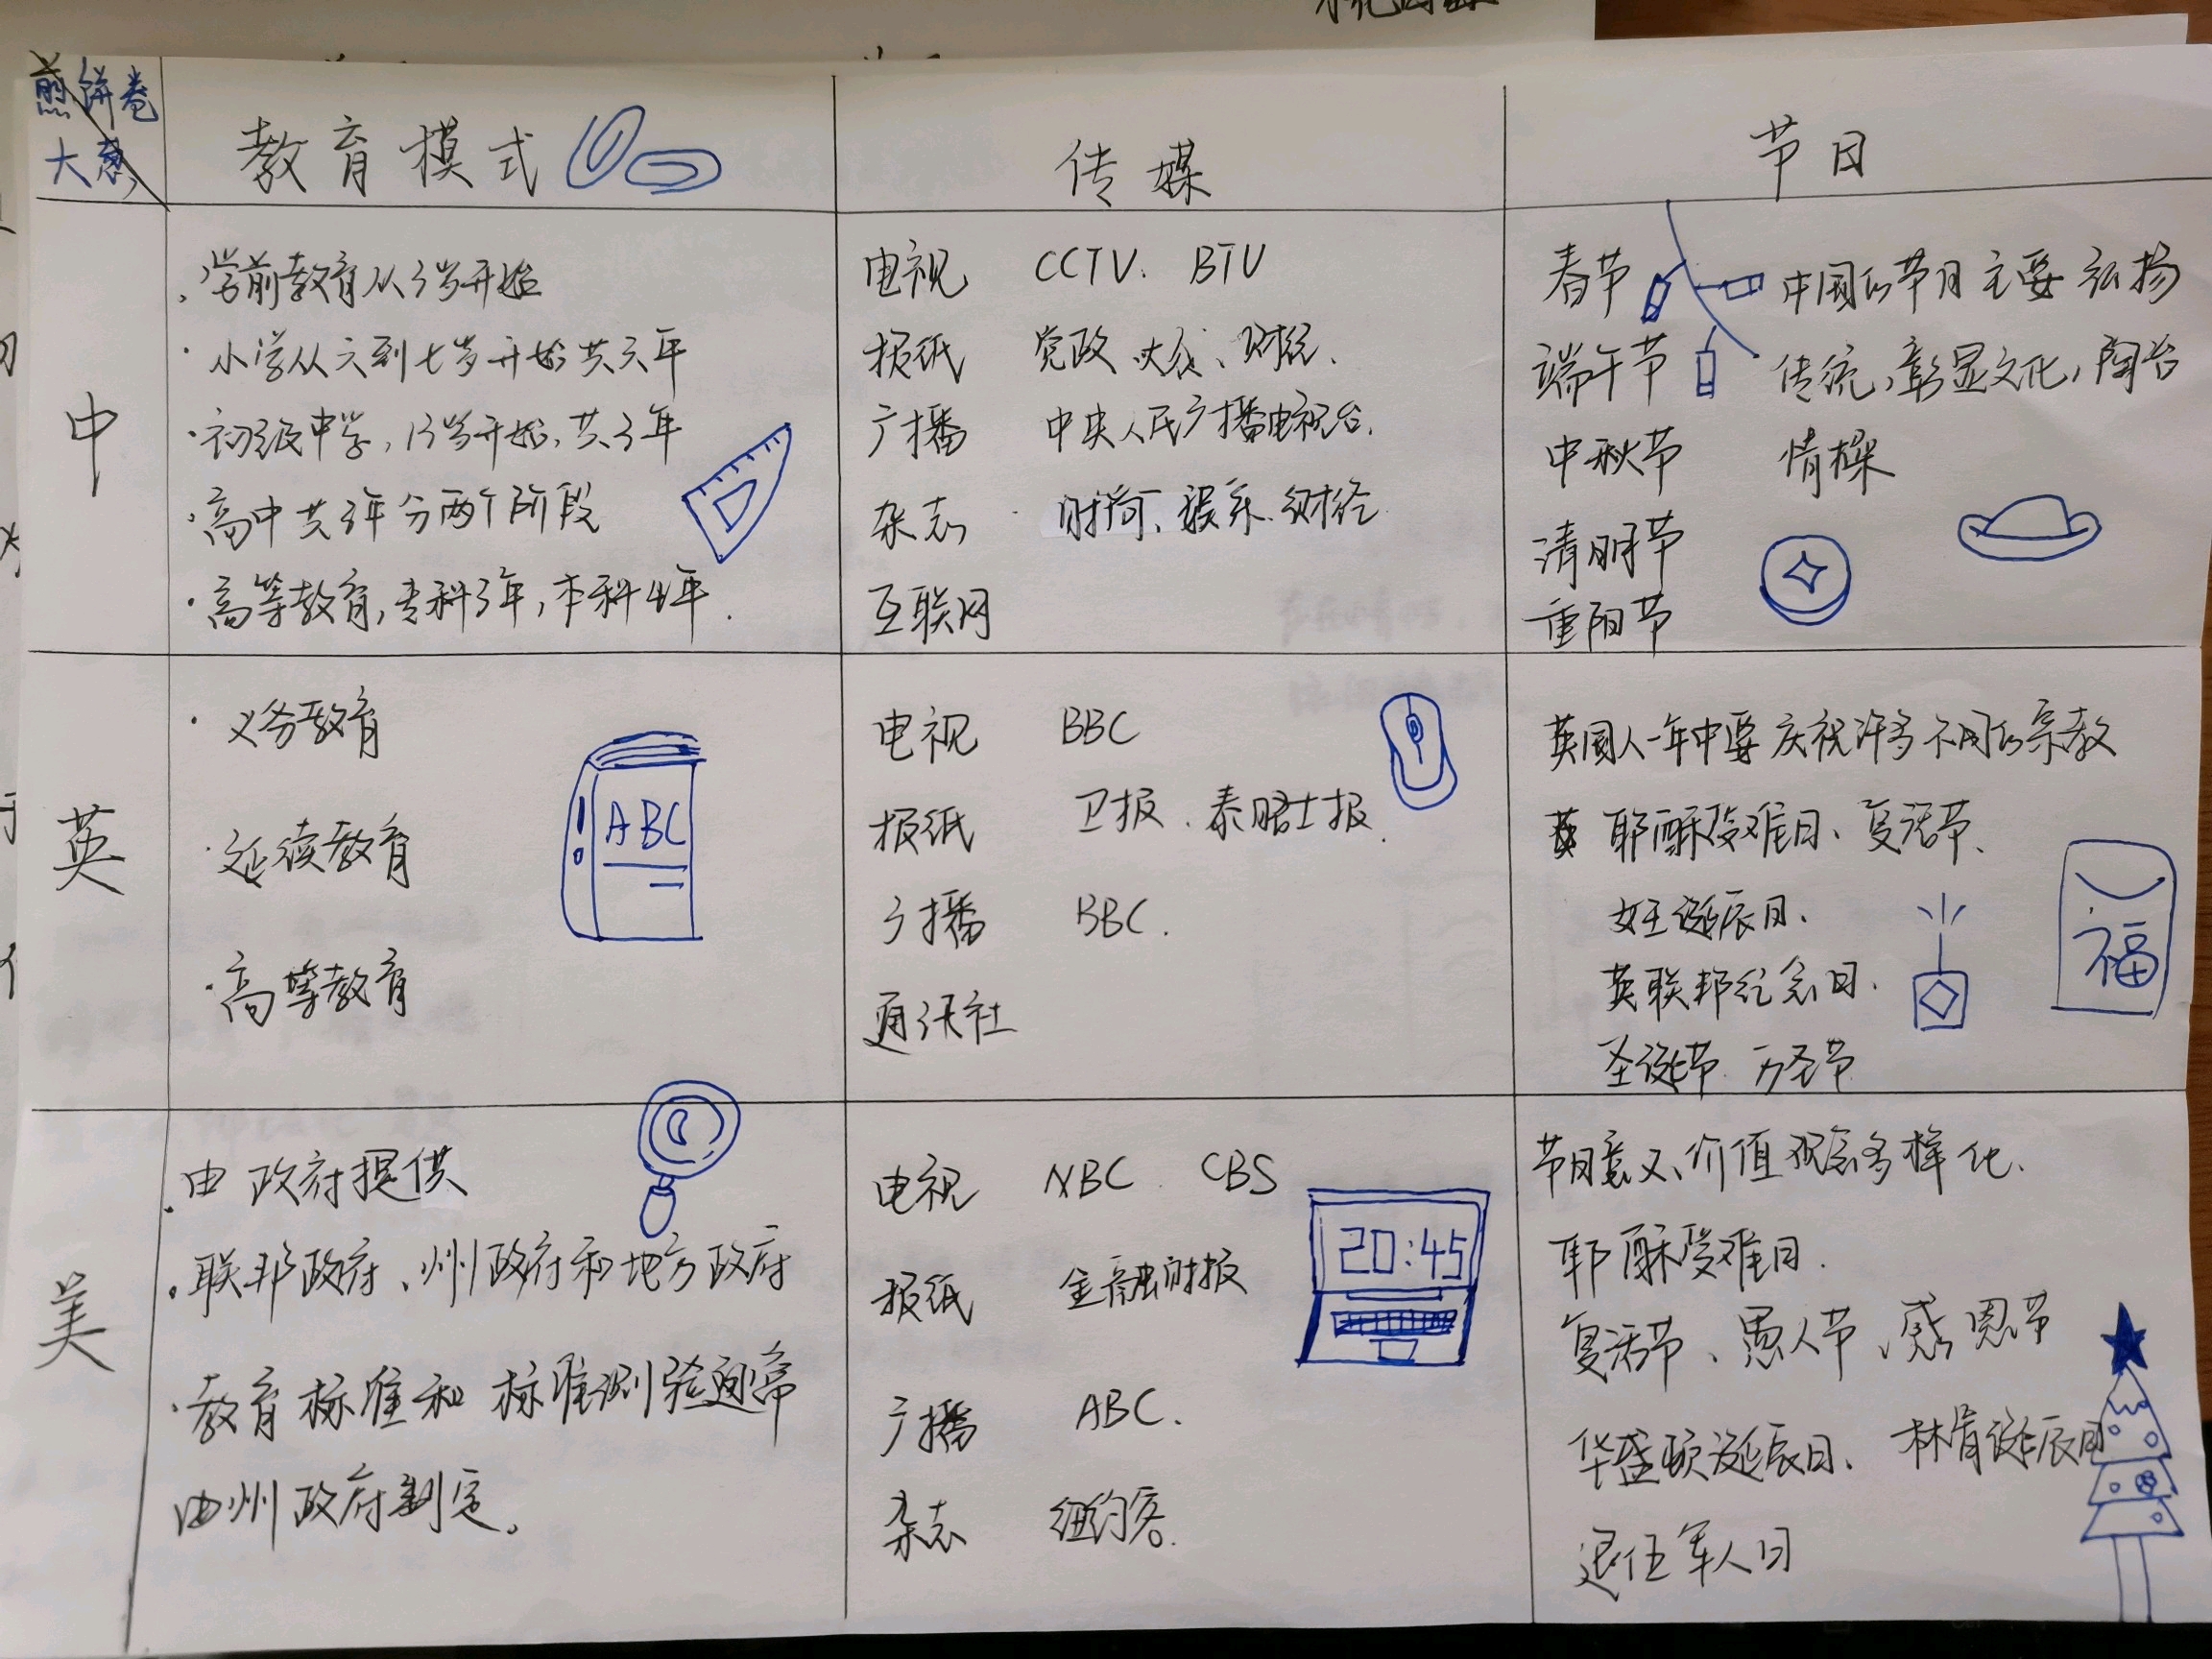 煎饼卷
大葱
教育模式
传媒
节日
中
·学前教育从3岁开始
·小学从六到七岁开始共六年
·初级中学,13岁开始,共3年
·高中共3年分两个阶段
·高等教育,专科3年,本科4年.
电视 CCTV. BTV
报纸 党政、大众、财经.
广播 中央人民广播电视台.
杂志 时尚、娱乐、财经
互联网
春节
端午节
中秋节
清明节
重阳节
中国的节日主要弘扬
传统,彰显文化,陶冶
情操
英
·义务教育
·延续教育
·高等教育
ABC
电视 BBC
报纸 卫报.泰晤士报.
广播 BBC.
通讯社
英国人一年中要庆祝许多不同的宗教
耶酥受难日、复活节、
女王诞辰日.
英联邦纪念日.
圣诞节.万圣节
福
美
·由政府提供
·联邦政府、州政府和地方政府
·教育标准和标准测验通常
由州政府制定。
电视 NBC CBS
报纸 金融时报
广播 ABC.
杂志 纽约客.
20:45
节日意义、价值观念多样化.
耶酥受难日.
复活节、愚人节、感恩节
华盛顿诞辰日、林肯诞辰日
退伍军人日